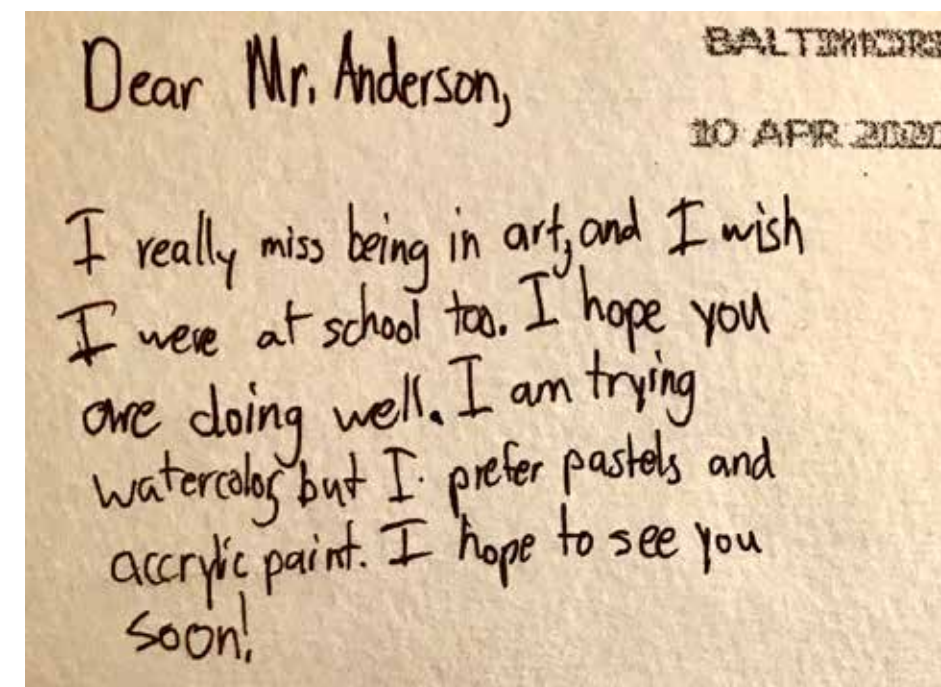 Dear Mr. Anderson,
BALTIMORE
10 APR 2020
I really miss being in art, and I wish
I were at school too. I hope you
are doing well. I am trying
watercolor, but I prefer pastels and
accrylic paint. I hope to see you
soon!